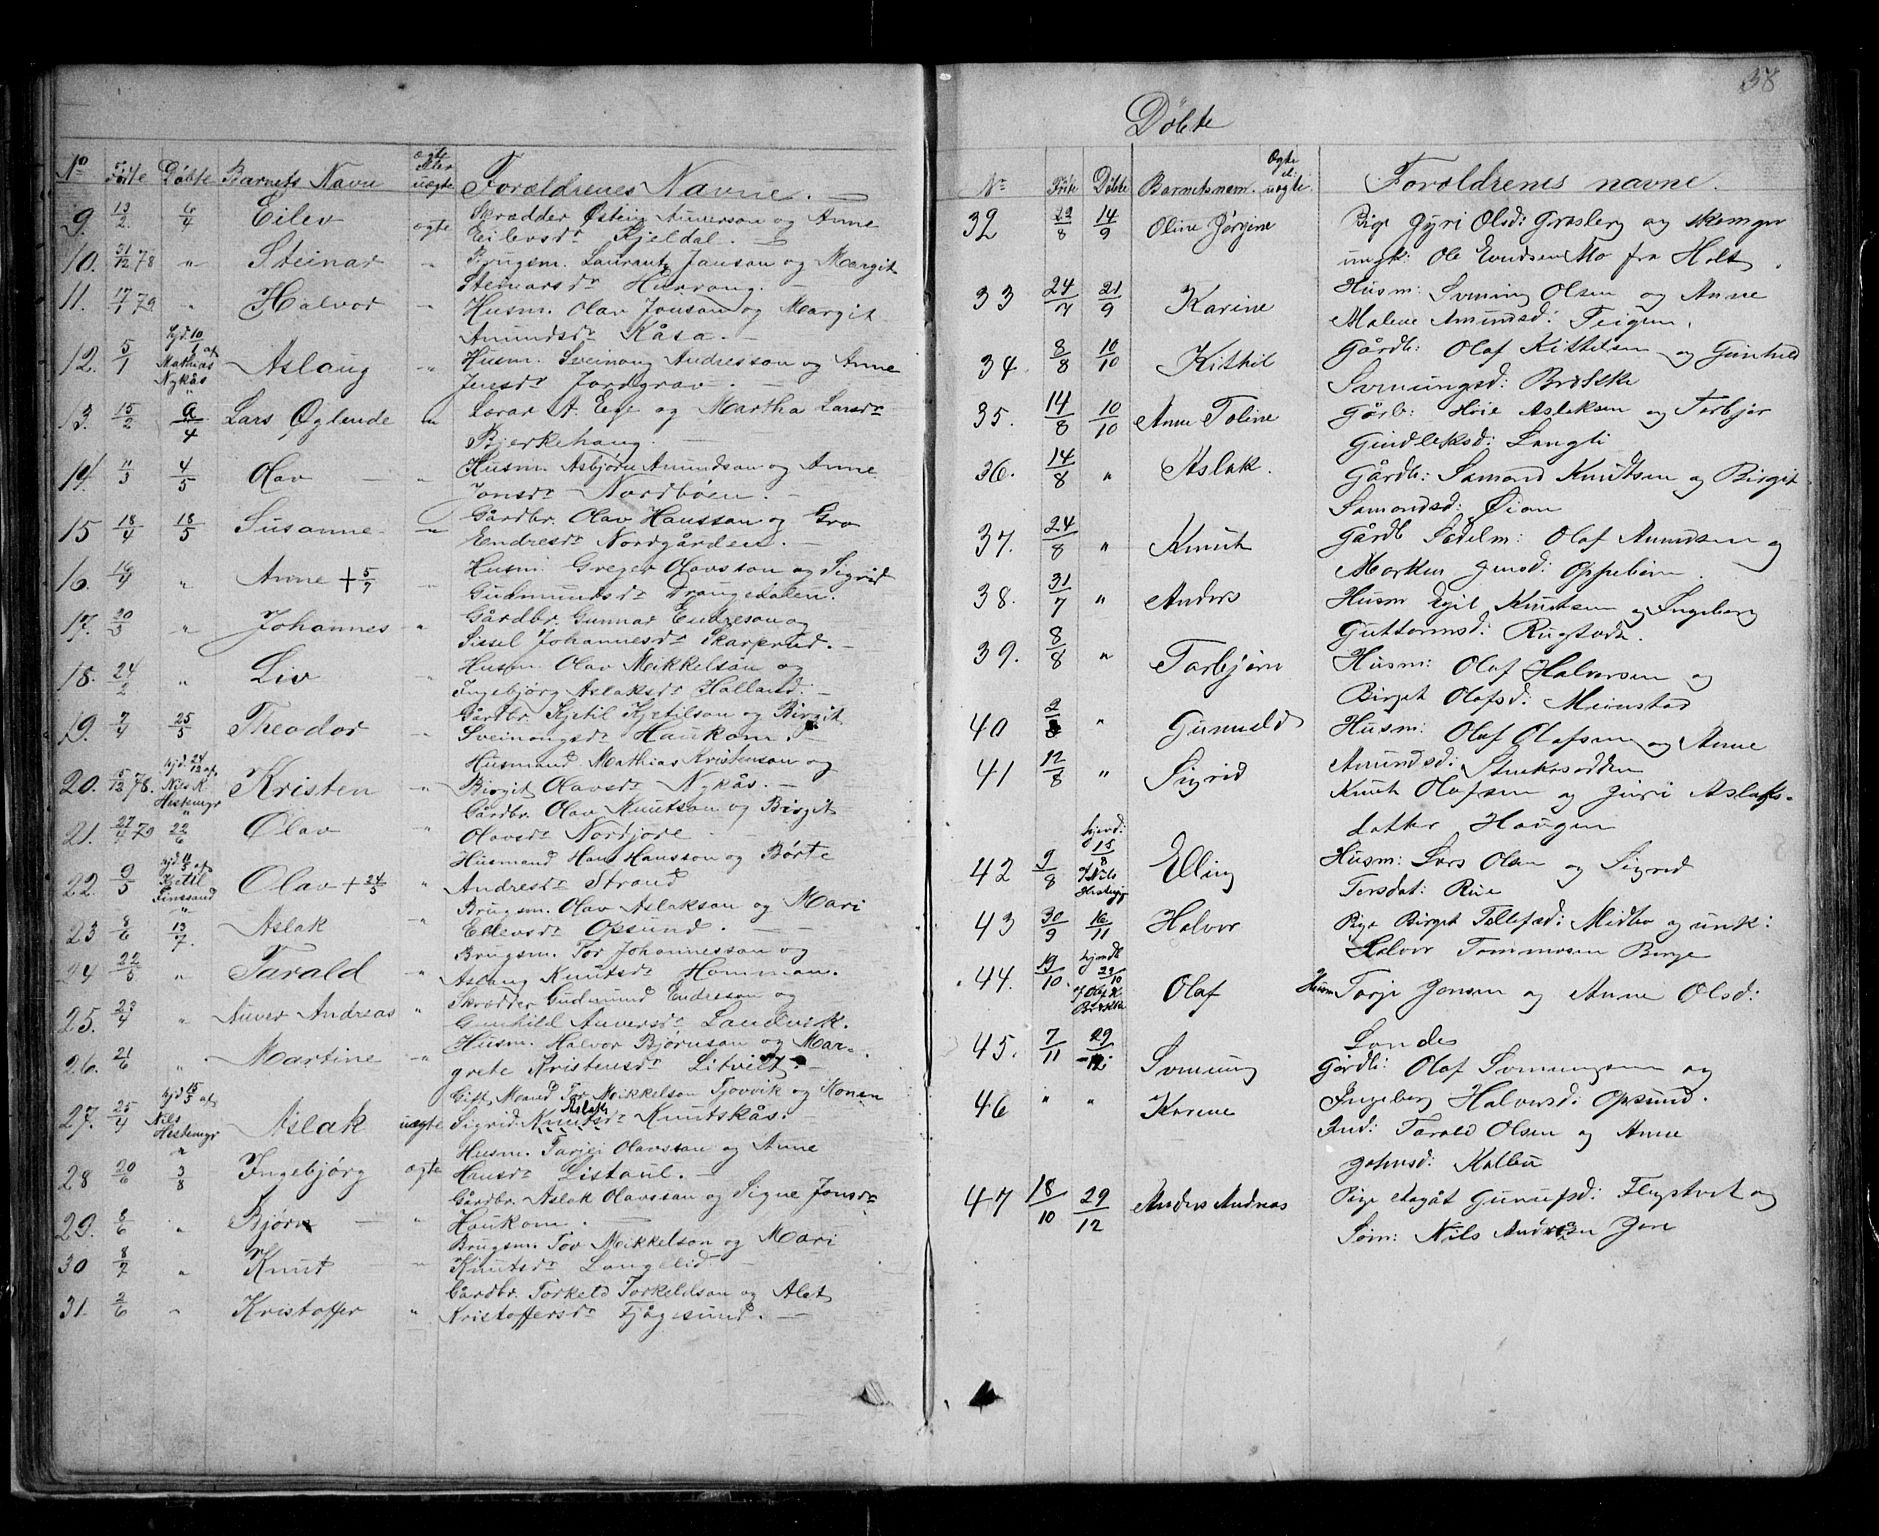 No Fødte Døbte Barnets Navn ægte eller uægte Forældrenes Navne.
9. 13/2 6/4 Eilev ægte Skrædder Østein Anverson og Anne
Eilevsdr Kjeldal.
10. 31/12 78 " Steinar " Brugsm. Laurantz Janson og Margit
Steinarsdr
11. 17/7 79 " Halvor " Husm. Olav Jonson og Margit
Amundsdr Kåsa.
12. 5/1 hjd. 10/1 af Mathias Nykås " Aslaug " Husm. Sveinong Andresson og Anne
Jensdr Jordgrav.
13. 15/2 4 Lars Øglende " Lærar A. Ege og Martha Larsdr
Bjerkehaug.
14. 11/3 4/5 Olav " Husm. Asbjørn Amundson og Anne
Jonsdr Nordbøen.
15 18/4 18/5 Susanne " Gårdbr. Olav Hansson og Gro
Endresdr Nordgården.
16. 4 " Anne + 5/7 " Husm. Greger Olavsson og Sigrid
Gudmundsdr Drangedalen.
17. 20/3 " Johannes " Gårdbr. Gunnar Endreson og
Sissel Johannesdr Skarprud.
18. 24/2 " Liv " Husm. Olav Mikkelson og
Ingebjørg Aslaksdr Halland.
19. 7/4 25/5 Theodor " Gårdbr. Kjetil Kjetilson og Birgit
Sveinongsdr Haukom.
20. 5/12 78. hjd. 24/12 af Nils K Hestemyr " Kristen " Husmand Mathias Kristenson og
Birgit Olavsdr Nykås.
21. 27/4 79 22/6 Olav " Gårdbr. Olav Knutson og Birgit
Olavsdr Nordjore.
22. 9/5 hjd. 11/5 af Kjetil Finssand " Olav + 24/5 " Husmand Hans Hansson og Børte
Andresdr Strand
23 8/6 13/7. Aslak " Brugsm. Olav Aslakson og Mari
Eilevsdr Opsund.
24 22/5 " Tarald " Brugsm. Tor Johannesson og
Aslaug Knutsdr Homman.
25. 23/4 " Anver Andreas " Skrædder Gudmund Endreson og
Gunhild Anversdr Landvik.
26. 21/6 " Martine " Husm. Halvor Bjørnson og Mar-
grete Kristensdr Litveit.
27. 25/4 hjd. 15/5 af Nils Hestemyr " Aslak uægte Gift Mand Tor Mikkelson Tjovvik og Konen
Sigrid Knutsdr Aslaks Knutskås.
28 20/6 3/8 Ingebjørg ægte Husm. Tarjei Olavsson og Anne
Hansdr Listaul.
29. 8/6 " Bjørn " Gårdbr. Aslak Olavsson og Signe Jonsdr
Haukom.
30 8/7 " Knut " Brugsm. Tov Mikkelson og Mari
Knutsdr Langelid
31. 2/6 " Kristoffer " Gårdbr. Torkeld Torkeldson og Alet
Kristoffersdr Fjågesund.
38
Døbte
No Fødte Døbte Barnetsnavn Ægte el. uægte. Foroldrenes navne.
32 29/8 14/9 Oline Jørgine Pige Gyri Olsd: Grasberg og
ungk: Ole Evndsen Mo fra Holt.
33 24/7 21/9 Karine Husm: Svenung Olsen og Anne
Malene Amundsd: Teigen.
34 8/8 10/10 Kittil Gårdb: Olaf Kittelsen og Gunhild
Svenungsd: Brekke
35. 14/8 10/10 Anne Toline Gårb: Hoie Asleksen og Torbjør
Gundleksd: Langli
36. 14/8 " Aslak. Gårdb: Samond Knutsen og Birgit
Samondsd: Øian
37. 24/8 " Knut Gårdb Sadelm: Olaf Amundsen og
Marken Jensd: Oppebøen.
38. 31/7 " Anders Husm Egil Knutsen og Ingeborg
Guttormsd: Rugtvedt.
39. 8/8 " Torbjørn Husm: Olaf Halvorsen og
Birget Olafsd: Meinstad
40 2/8 " Gunuld Husm: Olaf Olafsen og Anne
Amundsd: Stukesodden
41 12/8 " Sigrid Knut Olafsen og Juri Aslaks-
datter Haugen
42 9/8 hjemd: 15/8 af Nils Hestmyr Elling Husm: Lars Olsen og Sigrid
Torsdat: Rue
43 30/9 16/11 Halvor Pige Birget Tellefsd: Midbø og unk:
Halvor Tommesen Berge
44. 19/10 hjemdt 23/10 af Olaf K Brekke Olaf Husm Torje Jensen og Anne Olsd:
Landes
45. 7/11 29/12 Svenung Gårdb: Olaf Svenungsen og
Ingeborg Halvorsd: Opsund.
46 " " Karine Ind: Tarald Olsen og Anne
Johnsd: Kolbu
47 18/10 29/12 Anders Andreas Pige Aagåt Gunulfsd: Flystveit og
Søm: Nils Andersen Jore